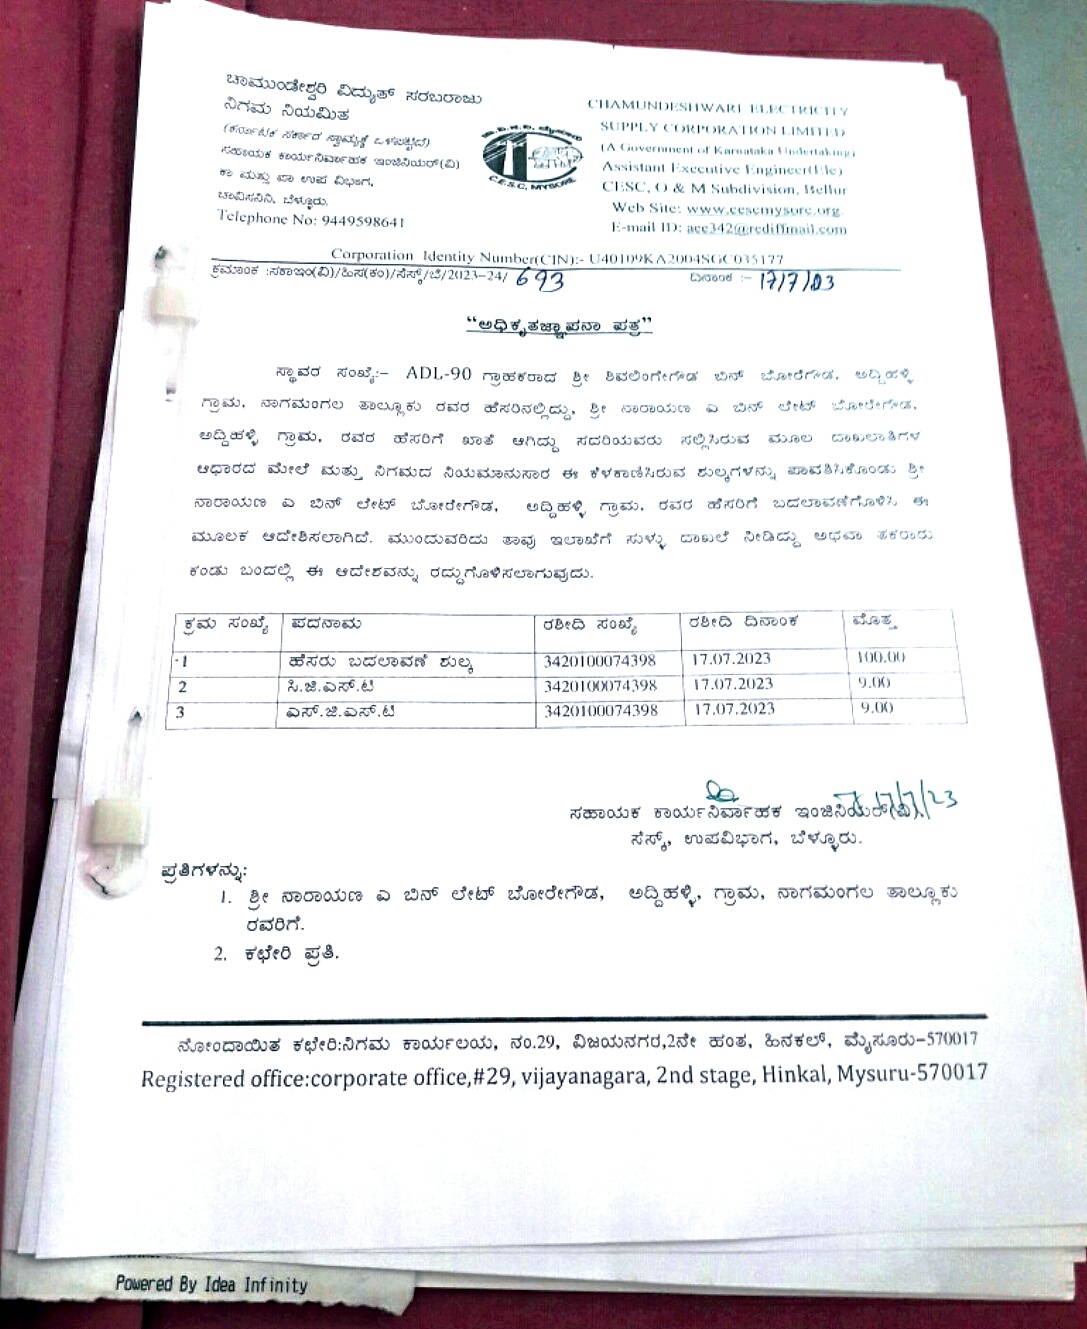 ಚಾಮುಂಡೇಶ್ವರಿ ವಿದ್ಯುತ್ ಸರಬರಾಜು
ನಿಗಮ ನಿಯಮಿತ
(ಕರ್ನಾಟಕ ಸರ್ಕಾರ ಸ್ವಾಮ್ಯಕ್ಕೆ ಒಳಪಟ್ಟಿದೆ)
ಸಹಾಯಕ ಕಾರ್ಯನಿರ್ವಾಹಕ ಇಂಜಿನಿಯರ್(ವಿ)
ಕಾ ಮತ್ತು ಪಾ ಉಪ ವಿಭಾಗ,
ಚಾವಿಸನಿನಿ, ಬೆಳ್ಳೂರು.
Telephone No: 9449598641
C.E.S.C, MYSORE
CHAMUNDESHWARI ELECTRICITY
SUPPLY CORPORATION LIMITED
(A Government of Karnataka Undertaking)
Assistant Executive Engineer(Ele)
CESC, O & M Subdivision, Bellur
Web Site: www.cescmysore.org.
E-mail ID: aee342@rediffmail.com
Corporation Identity Number(CIN):- U40109KA2004SGC035177
ಕ್ರಮಾಂಕ :ಸಕಾಇಂ(ವಿ)/ಹಿಸ(ಕಂ)/ಸೆಸ್ಕ್/ಬೆ/2023-24/ 693 ದಿನಾಂಕ :- 17/7/23
“ಅಧಿಕೃತಜ್ಞಾಪನಾ ಪತ್ರ”
ಸ್ಥಾವರ ಸಂಖ್ಯೆ:- ADL-90 ಗ್ರಾಹಕರಾದ ಶ್ರೀ ಶಿವಲಿಂಗೇಗೌಡ ಬಿನ್ ಬೋರೆಗೌಡ, ಅದ್ದಿಹಳ್ಳಿ
ಗ್ರಾಮ, ನಾಗಮಂಗಲ ತಾಲ್ಲೂಕು ರವರ ಹೆಸರಿನಲ್ಲಿದ್ದು, ಶ್ರೀ ನಾರಾಯಣ ಎ ಬಿನ್ ಲೇಟ್ ಬೋರೇಗೌಡ,
ಅದ್ದಿಹಳ್ಳಿ ಗ್ರಾಮ, ರವರ ಹೆಸರಿಗೆ ಖಾತೆ ಆಗಿದ್ದು ಸದರಿಯವರು ಸಲ್ಲಿಸಿರುವ ಮೂಲ ದಾಖಲಾತಿಗಳ
ಆಧಾರದ ಮೇಲೆ ಮತ್ತು ನಿಗಮದ ನಿಯಮಾನುಸಾರ ಈ ಕೆಳಕಾಣಿಸಿರುವ ಶುಲ್ಕಗಳನ್ನು ಪಾವತಿಸಿಕೊಂಡು ಶ್ರೀ
ನಾರಾಯಣ ಎ ಬಿನ್ ಲೇಟ್ ಬೋರೇಗೌಡ, ಅದ್ದಿಹಳ್ಳಿ ಗ್ರಾಮ, ರವರ ಹೆಸರಿಗೆ ಬದಲಾವಣೆಗೊಳಿಸಿ ಈ
ಮೂಲಕ ಆದೇಶಿಸಲಾಗಿದೆ. ಮುಂದುವರಿದು ತಾವು ಇಲಾಖೆಗೆ ಸುಳ್ಳು ದಾಖಲೆ ನೀಡಿದ್ದು ಅಥವಾ ತಕರಾರು
ಕಂಡು ಬಂದಲ್ಲಿ ಈ ಆದೇಶವನ್ನು ರದ್ದುಗೊಳಿಸಲಾಗುವುದು.
ಕ್ರಮ ಸಂಖ್ಯೆ ಪದನಾಮ ರಶೀದಿ ಸಂಖ್ಯೆ ರಶೀದಿ ದಿನಾಂಕ ಮೊತ್ತ
1 ಹೆಸರು ಬದಲಾವಣೆ ಶುಲ್ಕ 3420100074398 17.07.2023 100.00
2 ಸಿ.ಜಿ.ಎಸ್.ಟಿ 3420100074398 17.07.2023 9.00
3 ಎಸ್.ಜಿ.ಎಸ್.ಟಿ 3420100074398 17.07.2023 9.00
17/7/23
ಸಹಾಯಕ ಕಾರ್ಯನಿರ್ವಾಹಕ ಇಂಜಿನಿಯರ್(ವಿ),
ಸೆಸ್ಕ್, ಉಪವಿಭಾಗ, ಬೆಳ್ಳೂರು.
ಪ್ರತಿಗಳನ್ನು:
1. ಶ್ರೀ ನಾರಾಯಣ ಎ ಬಿನ್ ಲೇಟ್ ಬೋರೇಗೌಡ, ಅದ್ದಿಹಳ್ಳಿ, ಗ್ರಾಮ, ನಾಗಮಂಗಲ ತಾಲ್ಲೂಕು
ರವರಿಗೆ.
2. ಕಛೇರಿ ಪ್ರತಿ.
ನೋಂದಾಯಿತ ಕಛೇರಿ:ನಿಗಮ ಕಾರ್ಯಲಯ, ನಂ.29, ವಿಜಯನಗರ,2ನೇ ಹಂತ, ಹಿನಕಲ್, ಮೈಸೂರು-570017
Registered office:corporate office,#29, vijayanagara, 2nd stage, Hinkal, Mysuru-570017
Powered By Idea Infinity